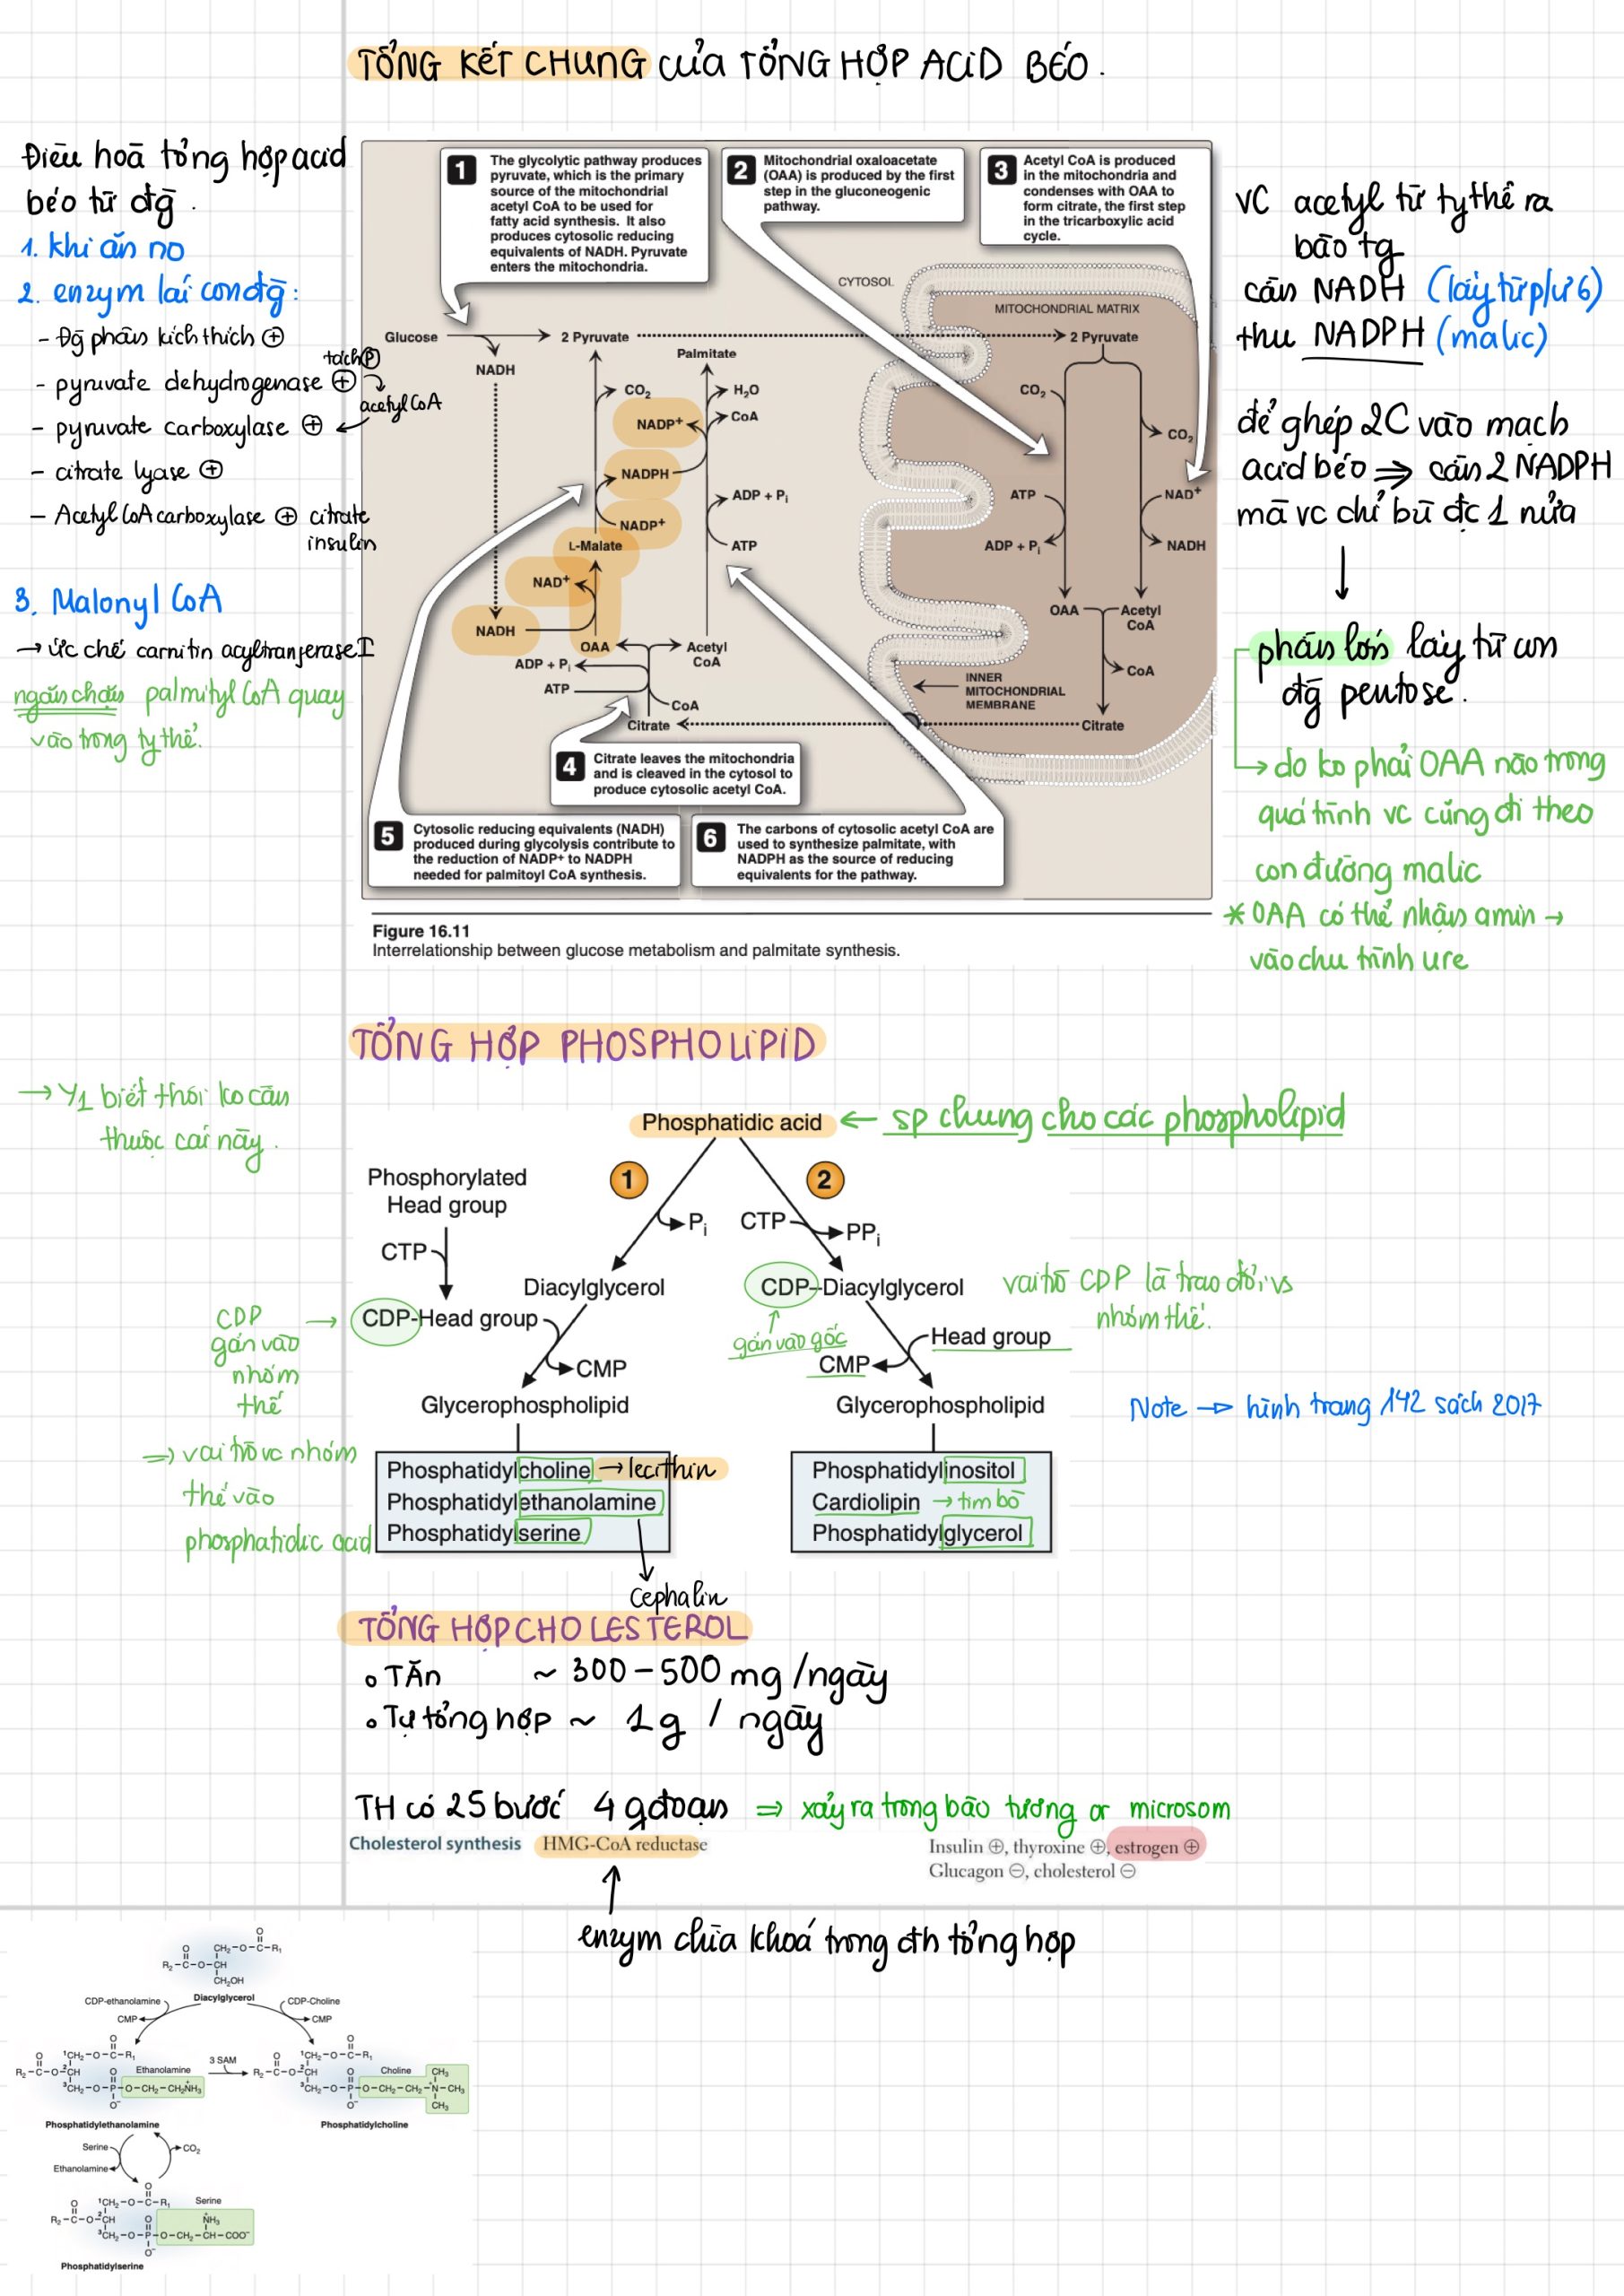 TỔNG KẾT CHUNG của TỔNG HỢP ACID BÉO.
Điều hoà tổng hợp acid
béo từ đg.
1. khi ăn no
2. enzym lái con đg:
- Đg phân kích thích ⊕
- pyruvate dehydrogenase ⊕
tách P
acetyl CoA
- pyruvate carboxylase ⊕
- citrate lyase ⊕
- Acetyl CoA carboxylase ⊕ citrate
insulin
3. Malonyl CoA
→ ức chế carnitin acyltranferase I
ngăn chặn palmityl CoA quay
vào trong ty thể.
1 The glycolytic pathway produces
pyruvate, which is the primary
source of the mitochondrial
acetyl CoA to be used for
fatty acid synthesis. It also
produces cytosolic reducing
equivalents of NADH. Pyruvate
enters the mitochondria.
2 Mitochondrial oxaloacetate
(OAA) is produced by the first
step in the gluconeogenic
pathway.
3 Acetyl CoA is produced
in the mitochondria and
condenses with OAA to
form citrate, the first step
in the tricarboxylic acid
cycle.
CYTOSOL
MITOCHONDRIAL MATRIX
Glucose
2 Pyruvate
2 Pyruvate
NADH
Palmitate
CO2
H2O
CoA
NADP+
NADPH
NADP+
ADP + Pi
ATP
L-Malate
NAD+
NADH
OAA
Acetyl
CoA
ADP + Pi
ATP
CoA
Citrate
CO2
CO2
ATP
NAD+
ADP + Pi
NADH
OAA
Acetyl
CoA
CoA
INNER
MITOCHONDRIAL
MEMBRANE
Citrate
4 Citrate leaves the mitochondria
and is cleaved in the cytosol to
produce cytosolic acetyl CoA.
5 Cytosolic reducing equivalents (NADH)
produced during glycolysis contribute to
the reduction of NADP+ to NADPH
needed for palmitoyl CoA synthesis.
6 The carbons of cytosolic acetyl CoA are
used to synthesize palmitate, with
NADPH as the source of reducing
equivalents for the pathway.
Figure 16.11
Interrelationship between glucose metabolism and palmitate synthesis.
VC acetyl từ ty thể ra
bào tg
cần NADH (lấy từ p/ứ 6)
thu NADPH (malic)
để ghép 2C vào mạch
acid béo ⇒ cần 2 NADPH
mà vc chỉ bù đc 1 nửa
phần lớn lấy từ con
đg pentose.
→ do ko phải OAA nào trong
quá trình vc cũng đi theo
con đường malic
* OAA có thể nhận amin →
vào chu trình ure
TỔNG HỢP PHOSPHOLIPID
→ Y1 biết thôi ko cần
thuộc cái này.
Phosphatidic acid ← sp chung cho các phospholipid
Phosphorylated
Head group
1
2
Pi
CTP
PPi
CTP
Diacylglycerol
CDP-Diacylglycerol
vai trò CDP là trao đổi vs
nhóm thế.
CDP → CDP-Head group
gắn vào
nhóm
thế
gắn vào gốc
Head group
CMP
CMP
Glycerophospholipid
Glycerophospholipid
Note → hình trang 142 sách 2017
⇒ vai trò vc nhóm
thế vào
phosphatidic acid
Phosphatidylcholine → lecithin
Phosphatidylethanolamine
Phosphatidylserine
Cephalin
Phosphatidylinositol
Cardiolipin → tim bò
Phosphatidylglycerol
TỔNG HỢP CHOLESTEROL
∘ TĂn ~ 300 - 500 mg/ngày
∘ Tự tổng hợp ~ 1g / ngày
TH có 25 bước 4 gđoạn ⇒ xảy ra trong bào tương or microsom
Cholesterol synthesis HMG-CoA reductase
Insulin ⊕, thyroxine ⊕, estrogen ⊕
Glucagon ⊖, cholesterol ⊖
enzym chìa khoá trong cth tổng hợp
O
CH2-O-C-R1
O
R2-C-O-CH
CH2OH
Diacylglycerol
CDP-ethanolamine
CDP-Choline
CMP
CMP
O
1CH2-O-C-R1
O
R2-C-O-2CH
O
Ethanolamine
3CH2-O-P-O-CH2-CH2N+H3
O-
Phosphatidylethanolamine
3 SAM
O
1CH2-O-C-R1
O
R2-C-O-2CH
O
Choline
CH3
3CH2-O-P-O-CH2-CH2-N+-CH3
O-
CH3
Phosphatidylcholine
Serine
CO2
Ethanolamine
O
1CH2-O-C-R1
Serine
O
R2-C-O-2CH
O
N+H3
3CH2-O-P-O-CH2-CH-COO-
O-
Phosphatidylserine